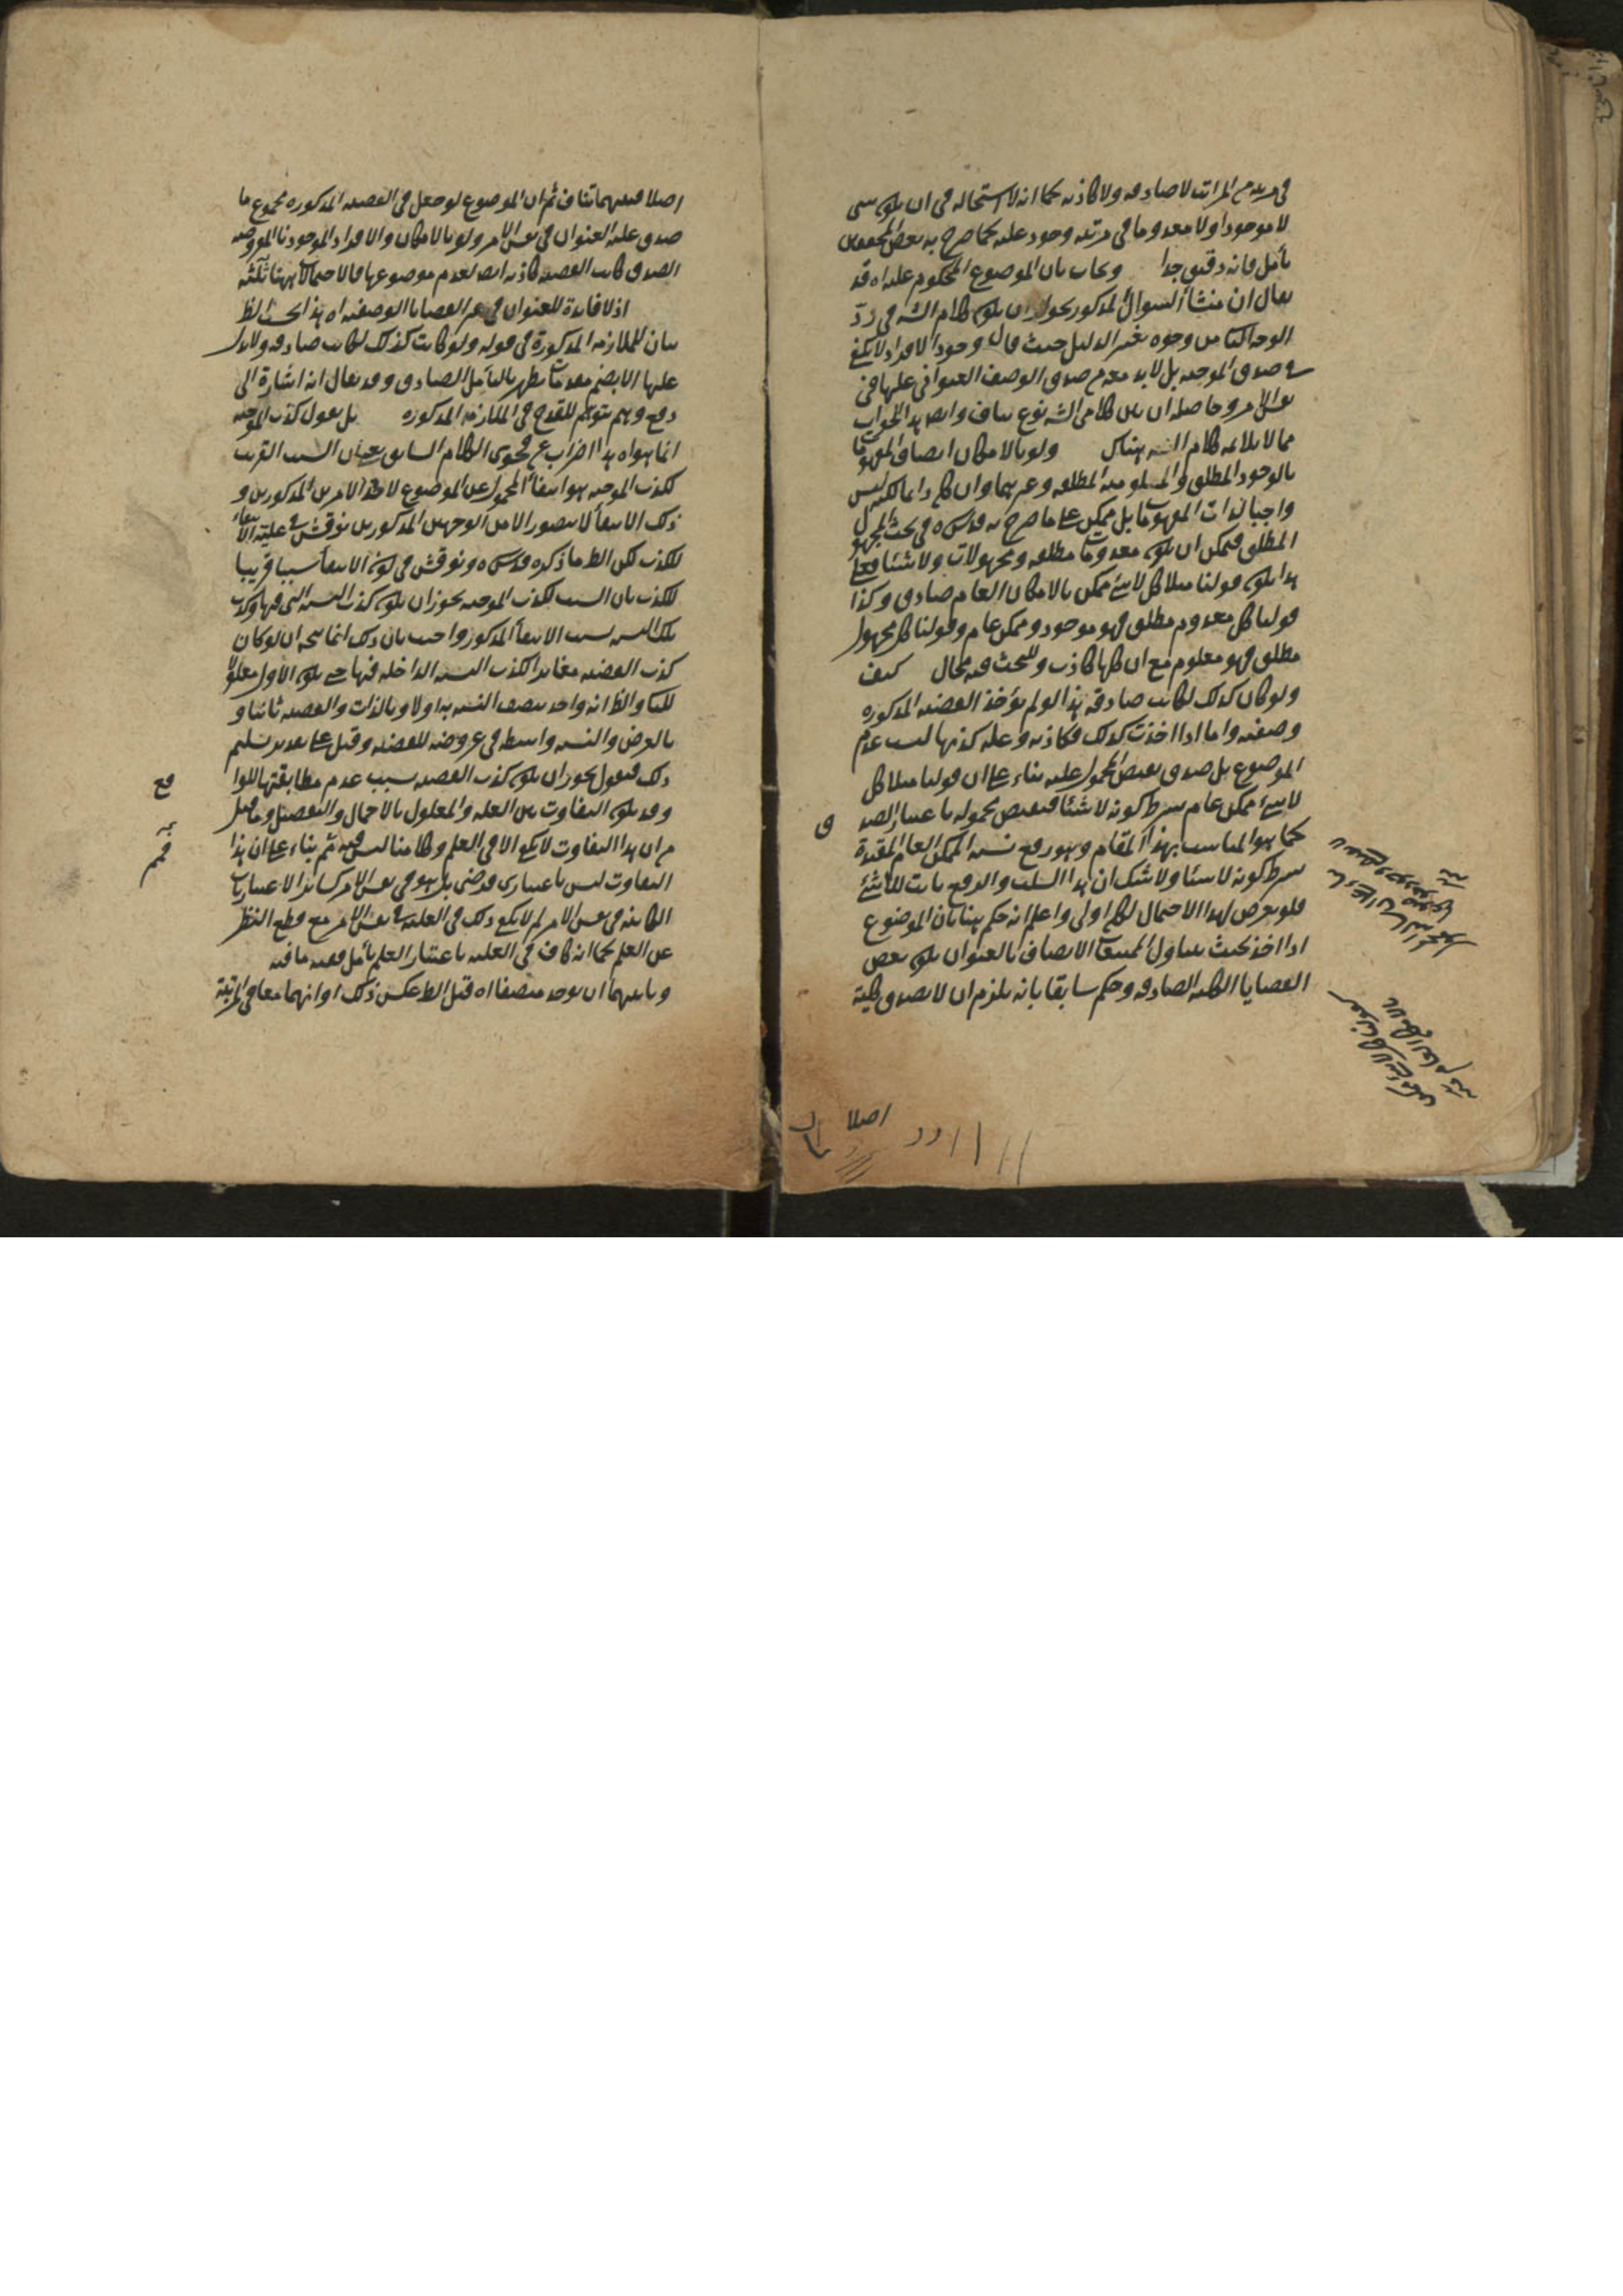 في مرتبة من المراتب لا صادقه ولا كاذبه كما انه لا استحاله في ان يكون شي
لا موجودا ولا معدوما في مرتبه وجود علته كما صرح به بعض المحققين
تأمل فانه دقيق جدا وبجاب بان الموضوع المحكوم عليه اه قد
يقال ان منشأ السوال المذكور بجواز ان يكون كلام الش في ردّ
الوجه الثا من وجوه تغير الدليل حيث قال وجود الافراد لا يكفي
في صدق الموجبه بل لا بد معه من صدق الوصف العنواني عليها في
نفس الامر وحاصله ان بين كلامي الش نوع تناف وايض هذا الجواب
مما لا يلائمه كلام الش هناك ولو بالامكان اتصاف المفهومات
بالوجود المطلق والمعلوميه المطلقه وغيرهما وان كان دائما لكنه ليس
واجبا لذات المفهومات بل ممكن على ما صرح به قدس سره في بحث المجهول
المطلق فيمكن ان يكون معدومات مطلقه ومجهولات ولا شيئا فعلى
هذا يكون قولنا مثلا كل لا شئ ممكن بالامكان العام صادق وكذا
قولنا كل معدوم مطلق فهو موجود وممكن عام وقولنا كل مجهول
مطلق فهو معلوم مع ان كلها كاذب وللبحث فيه مجال كيف
ولو كان كذلك لكانت صادقه هذا لو لم يؤخذ القضيه المذكوره
وصفيه واما اذا اخذت كذلك فكاذبه وعله كذبها ليست عدم
الموضوع بل صدق نقيض المحمول عليه بناء على ان قولنا مثلا كل
لا شئ ممكن عام بشرط كونه لا شيئا فنقيض محموله باعتبار الصدق
كما هو المناسب بهذا المقام وهو رفع نسبه الممكن العام المقيدة
بشرط كونه لا شيئا ولا شك ان هذا السلب والرفع ثابت للاشئ
فلو تعرض لهذا الاحتمال لكان اولى واعلم انه حكم ههنا بان الموضوع
اذا اخذ بحيث يتناول الممتنعات الاتصاف بالعنوان يكون بعض
القضايا الكليه الصادقه وحكم سابقا بانه يلزم ان لا يصدق كلية
اصلا
اصلا فبينهما تناف ثم ان الموضوع لو جعل في القضيه المذكوره مجموع ما
صدق عليه العنوان في نفس الامر ولو بالامكان والافراد الموجودة المفروضه
الصدق كانت القضيه كاذبه ايض لعدم موضوعها فالاحتمالات ههنا ثلثه
اذ لا فائدة للعنوان في غير القضايا الوصفيه اه هذا بحث الظ
بيان للملازمه المذكورة في قوله ولو كانت كذلك لكانت صادقه ولا يدل
عليها الا بضم مقدمات يظهر بالتأمل الصادق وقد يقال انه اشارة الى
دفع وهم يتوهم للقدح في الملازمه المذكوره بل يقول كذب الموجبه
انما هو اه هذا اضراب عن فحوى الكلام السابق يعني ان السبب القريب
لكذب الموجبه هو انتفأ المحمول عن الموضوع لاحد الامرين المذكورين و
ذلك الانتفأ لا يتصور الا من الوجهين المذكورين نوقش في علية الانتفاء
للكذب لكن الظ ما ذكره قدس سره ونوقش في كون الانتفأ سببا قريبا
للكذب بان السبب لكذب الموجبه يجوز ان يكون كذب النسبه التي فيها وكذب
تلك النسبه لسبب الانتفأ المذكور واجيب بان ذلك انما يتجه ان لو كان
كذب القضيه مغايرا لكذب النسبه الداخله فيها حتى يكون الاول معلولا
للثا والظ انه واحد يتصف النسبه به اولا وبالذات والقضيه ثانيا و
بالعرض والنسبه واسطه في عروضه للقضيه وقيل على تقدير تسليم
ذلك فنقول يجوز ان يكون كذب القضيه بسبب عدم مطابقتها للواقع
وقد يكون التفاوت بين العله والمعلول بالاجمال والتفصيل وما قيل
من ان هذا التفاوت لا يكفي الا في العلم وكلامنا ليس فيه ثم بناء على ان هذا
التفاوت ليس باعتبارى فرضى بل هو في نفس الامر كسائر الاعتباريات
الكائنه في نفس الامر لم لا يكفي ذلك في العليه في نفس الامر مع قطع النظر
عن العلم كما انه كاف في العليه باعتبار العلم تأمل ففيه ما فيه
وثانيهما ان يوجد متصفا اه قيل الظ عكس ذلك او انهما معا في المرتبة